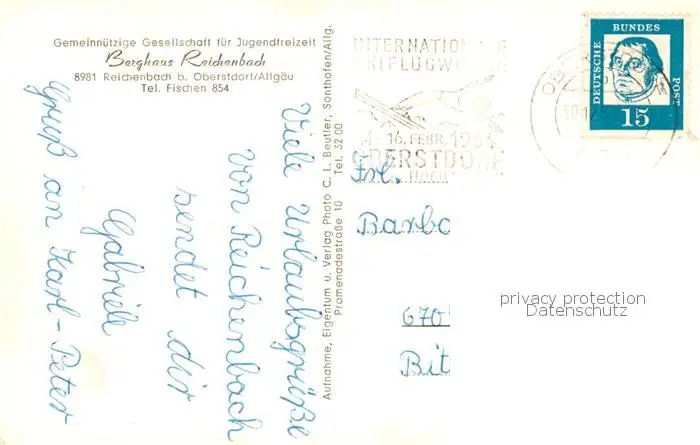 Gemeinnützige Gesellschaft für Jugendfreizeit
Berghaus Reichenbach
8981 Reichenbach b. Oberstdorf/Allgäu
Tel. Fischen 854
Viele Urlaubsgrüße
von Reichenbach
sendet dir
Gabriele
Gruß an Karl-Peter
Aufnahme, Eigentum u. Verlag Photo C. L. Beutler, Sonthofen/Allg.
Promenadestraße 10 Tel. 32 00
INTERNATIONALE
SKIFLUGWOCHE
14.-16. FEBR. 1964
OBERSTDORF
DEUTSCHE
BUNDES
POST
15
Frl.
Barba
670
Bit
privacy protection
Datenschutz